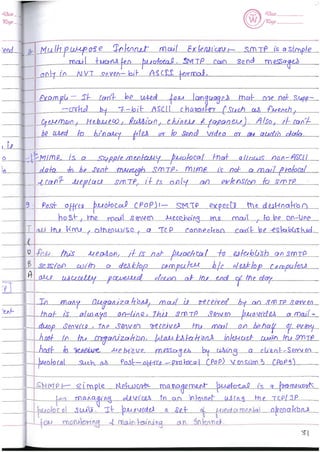 Multipurpose Internet mail Extension:- SMTP is a simple
mail transfer protocol. SMTP can send messages
only in NVT seven-bit ASCII format.
Example - It can't be used for languages that are not supp-
-orted by 7-bit ASCII character (Such as French,
German, Hebrew, Russian, chinese & Japanese). Also, it can't
be used to binary files or to send video or an audio data.
MIME is a supplementary protocol that allows non-ASCII
data to be sent through SMTP. MIME is not a mail protocol
& can't replace SMTP, it is only an extension to SMTP.
9 Post office protocol (POP):- SMTP expects the destination
host, the mail server receiving the mail, to be on-line
all the time, otherwise, a TCP connection can't be established.
For this reason, it is not practical to establish an SMTP
session with a desktop computer b/c desktop computers
are usually powered down at the end of the day
In many organizations, mail is received by an SMTP server
that is always on-line. This SMTP server provides a mail-
drop service. The server receives the mail on behalf of every
host in the organization. interact with the SMTP
host to retrieve messages by using a client-server
protocol such as Post-office-Protocol (POP) version 3 (POP3).
SNMP:- Simple Network management protocol is a framework
for managing devices in an internet using the TCP/IP
protocol suite. It provides a set of fundamental operations
for monitoring & maintaining an Internet.